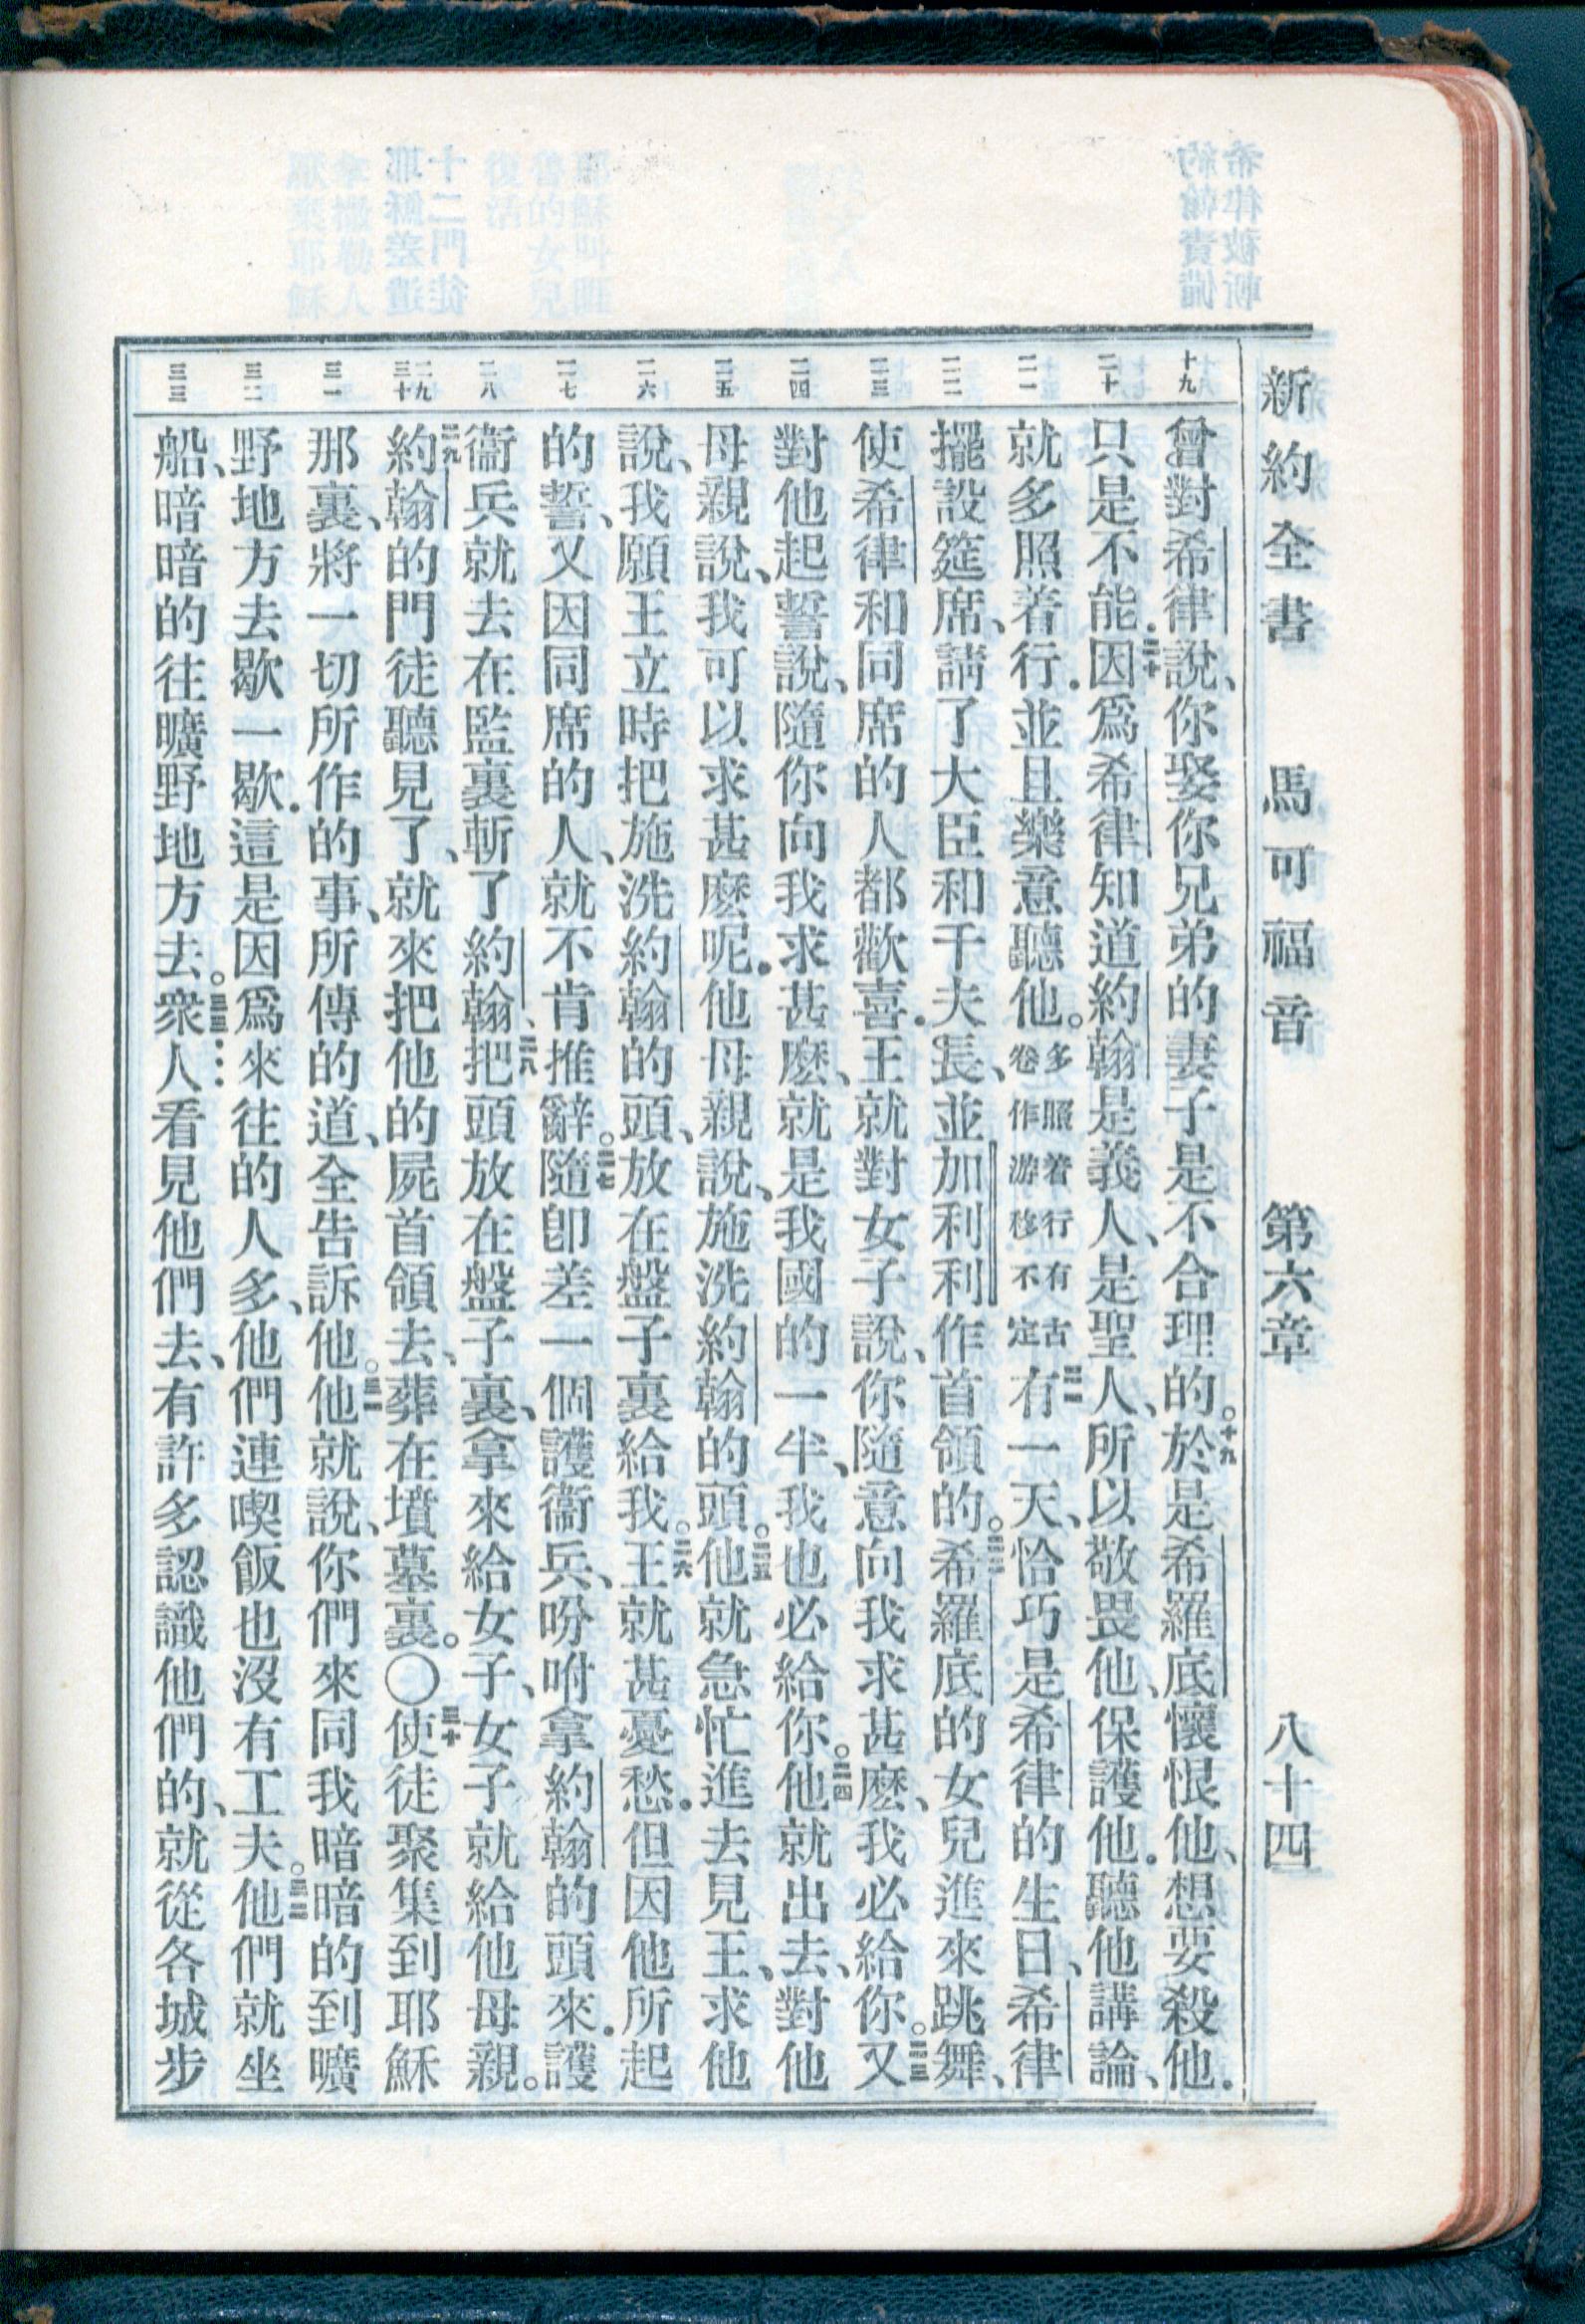 新約全書 馬可福音 第六章 八十四
十九 二十 二一 二二 二三 二四 二五 二六 二七 二八 二九 三十 三一 三二 三三
曾對希律說、你娶你兄弟的妻子是不合理的。十九於是希羅底懷恨他、想要殺他.
只是不能.二十因爲希律知道約翰是義人、是聖人、所以敬畏他、保護他.聽他講論、
就多照着行.並且樂意聽他。多照着行有古卷作游移不定二一有一天、恰巧是希律的生日、希律
擺設筵席、請了大臣和千夫長、並加利利作首領的。二二希羅底的女兒進來跳舞、
使希律和同席的人都歡喜.王就對女子說、你隨意向我求甚麽、我必給你。二三又
對他起誓說、隨你向我求甚麽、就是我國的一半、我也必給你。二四他就出去、對他
母親說、我可以求甚麽呢.他母親說、施洗約翰的頭。二五他就急忙進去見王、求他
說、我願王立時把施洗約翰的頭、放在盤子裏給我。二六王就甚憂愁.但因他所起
的誓、又因同席的人、就不肯推辭。二七隨卽差一個護衞兵、吩咐拿約翰的頭來.護
衞兵就去在監裏斬了約翰、二八把頭放在盤子裏、拿來給女子、女子就給他母親。
二九約翰的門徒聽見了、就來把他的屍首領去、葬在墳墓裏。〇三十使徒聚集到耶穌
那裏、將一切所作的事、所傳的道、全告訴他。三一他就說、你們來同我暗暗的到曠
野地方去歇一歇.這是因爲來往的人多、他們連喫飯也沒有工夫。三二他們就坐
船、暗暗的往曠野地方去。三三衆人看見他們去、有許多認識他們的、就從各城步